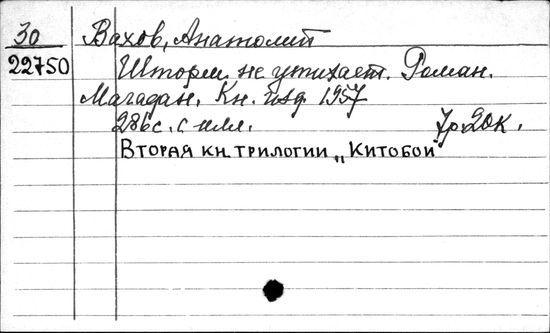 30 Вахов, Анатолий
22750 Шторм не утихает. Роман.
Магадан. Кн. изд. 1957
286с. с илл. 7р.20к.
Вторая кн. трилогии „Китобои"